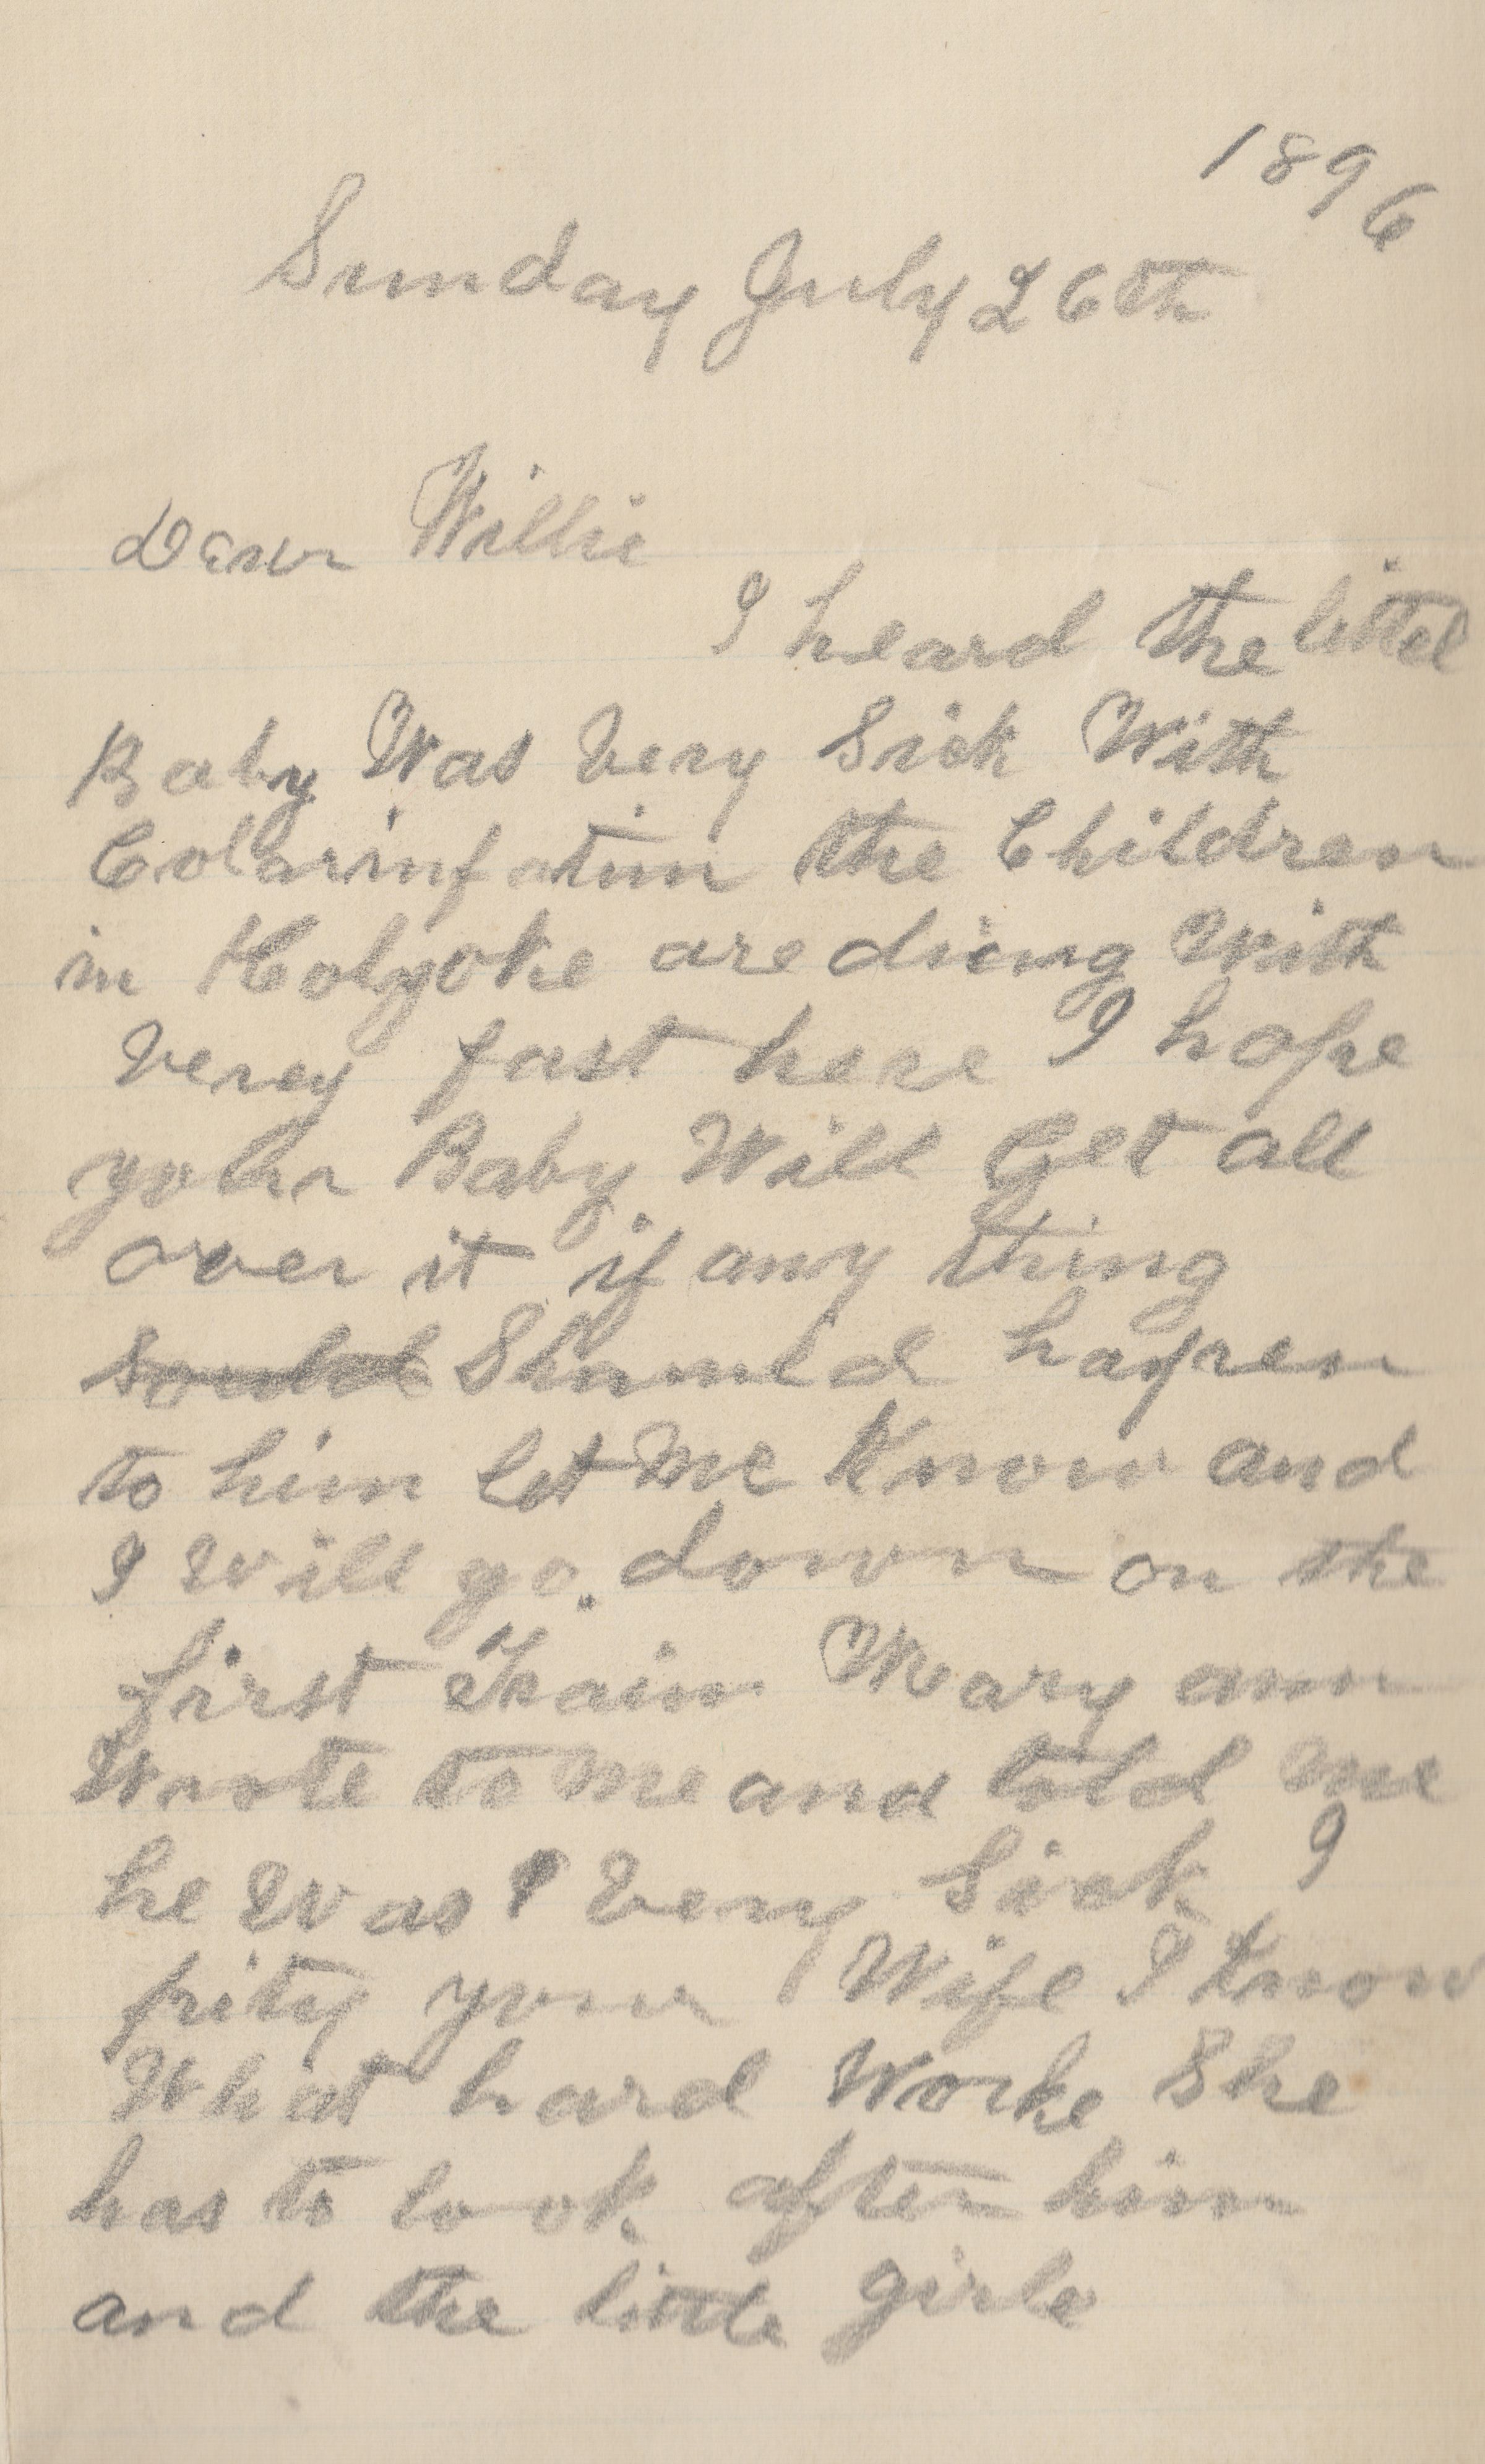 1896
Sunday July 26th
Dear Willie
I heard the littel
Baby Was Very Sick With
Colarinfatim the Children
in Holyoke are dieing With
Verey fast here I hope
your Baby Will Get all
over it if any thing
sould Should hapen
to him let me Know and
I Will go down on the
first train Mary ann
Wrote to me and told me
he Was Very Sick I
pity your Wife I Know
What hard Worke She
has to look after him
and the little girle